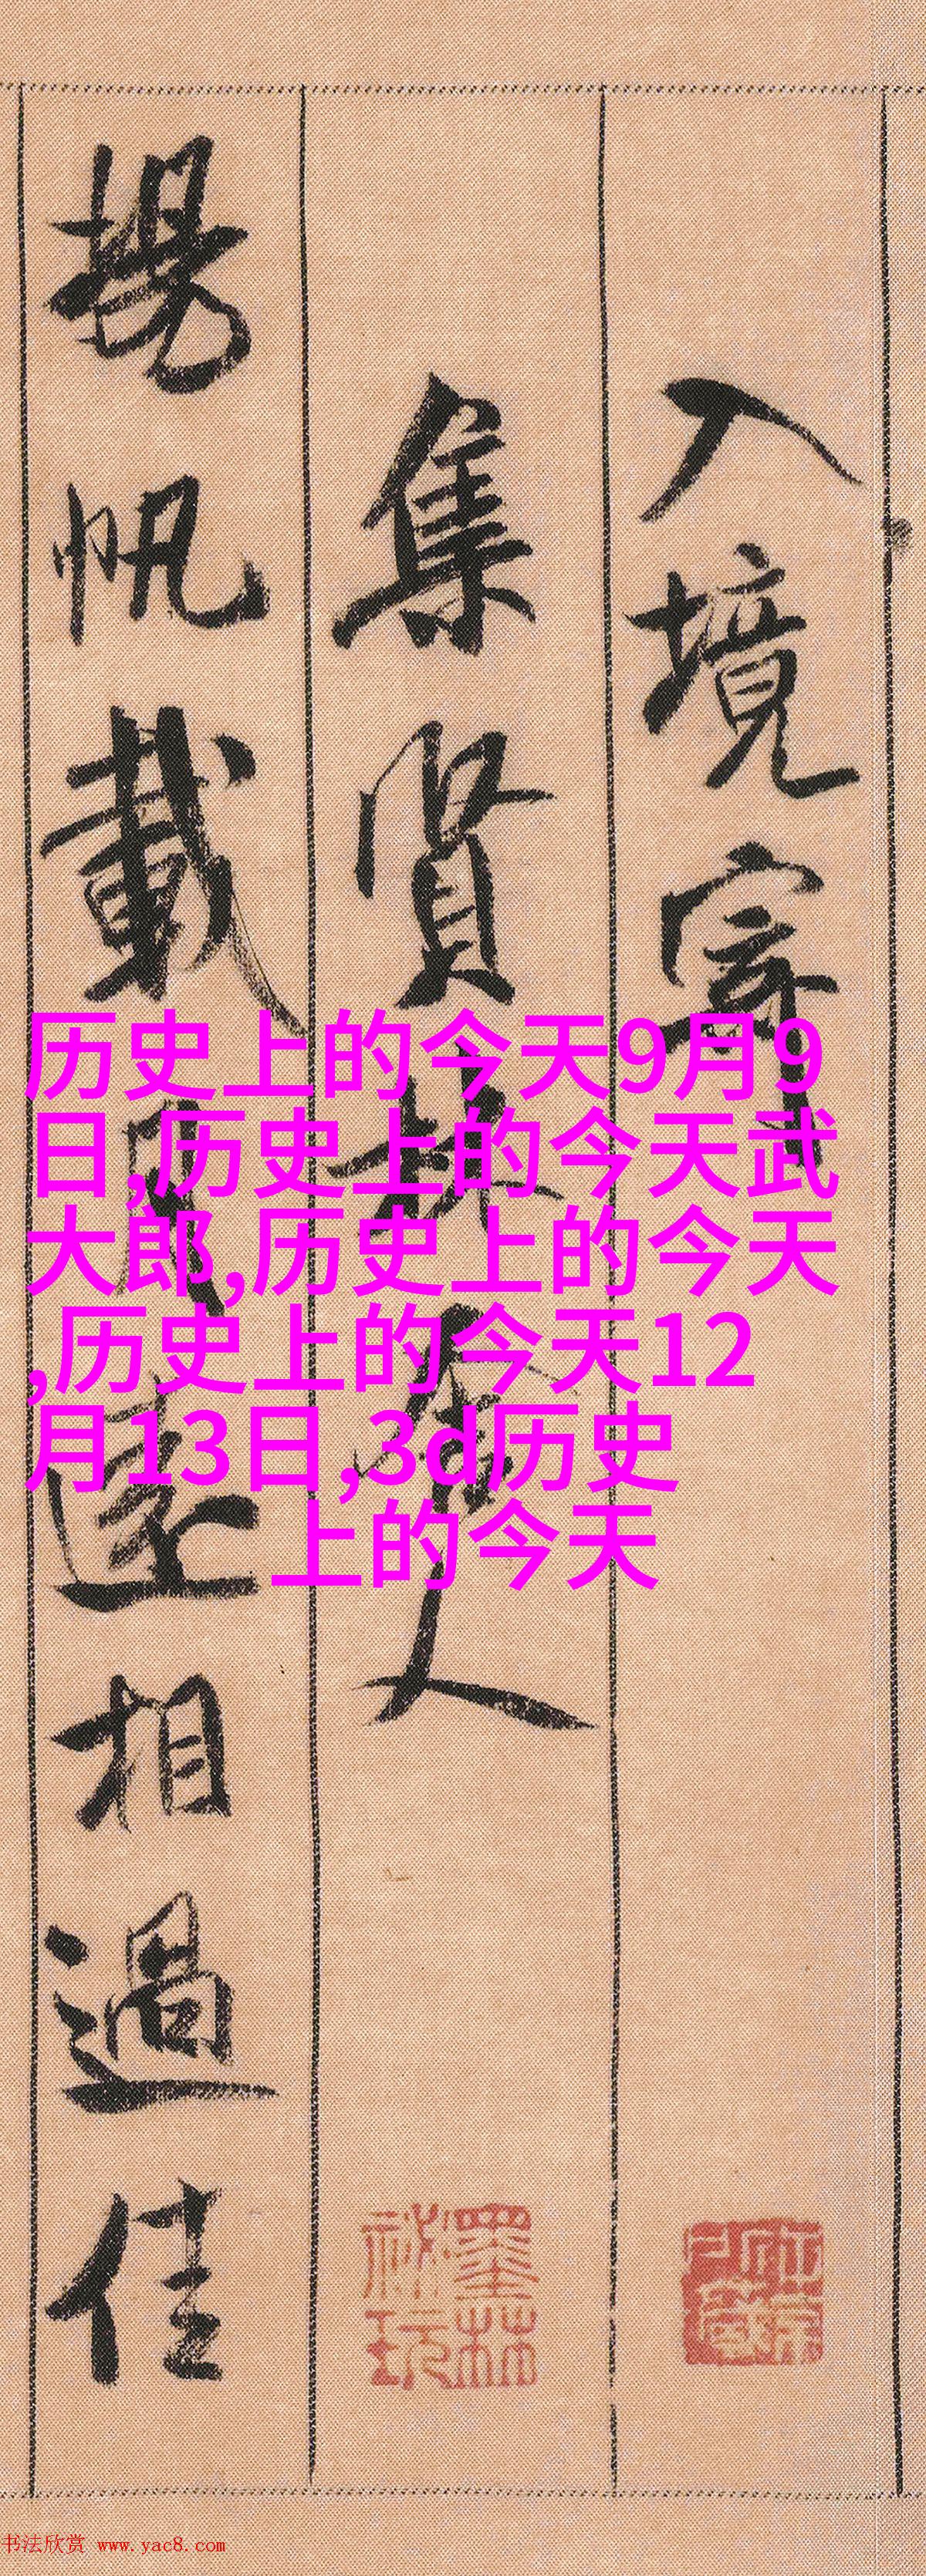 入境寄
集賢林舍人
揚帆載月遠相過佳
历史上的今天9月9
日,历史上的今天武
大郎,历史上的今天
,历史上的今天12
月13日,3d历史
上的今天
墨林祕玩
书法欣赏 www.yac8.com